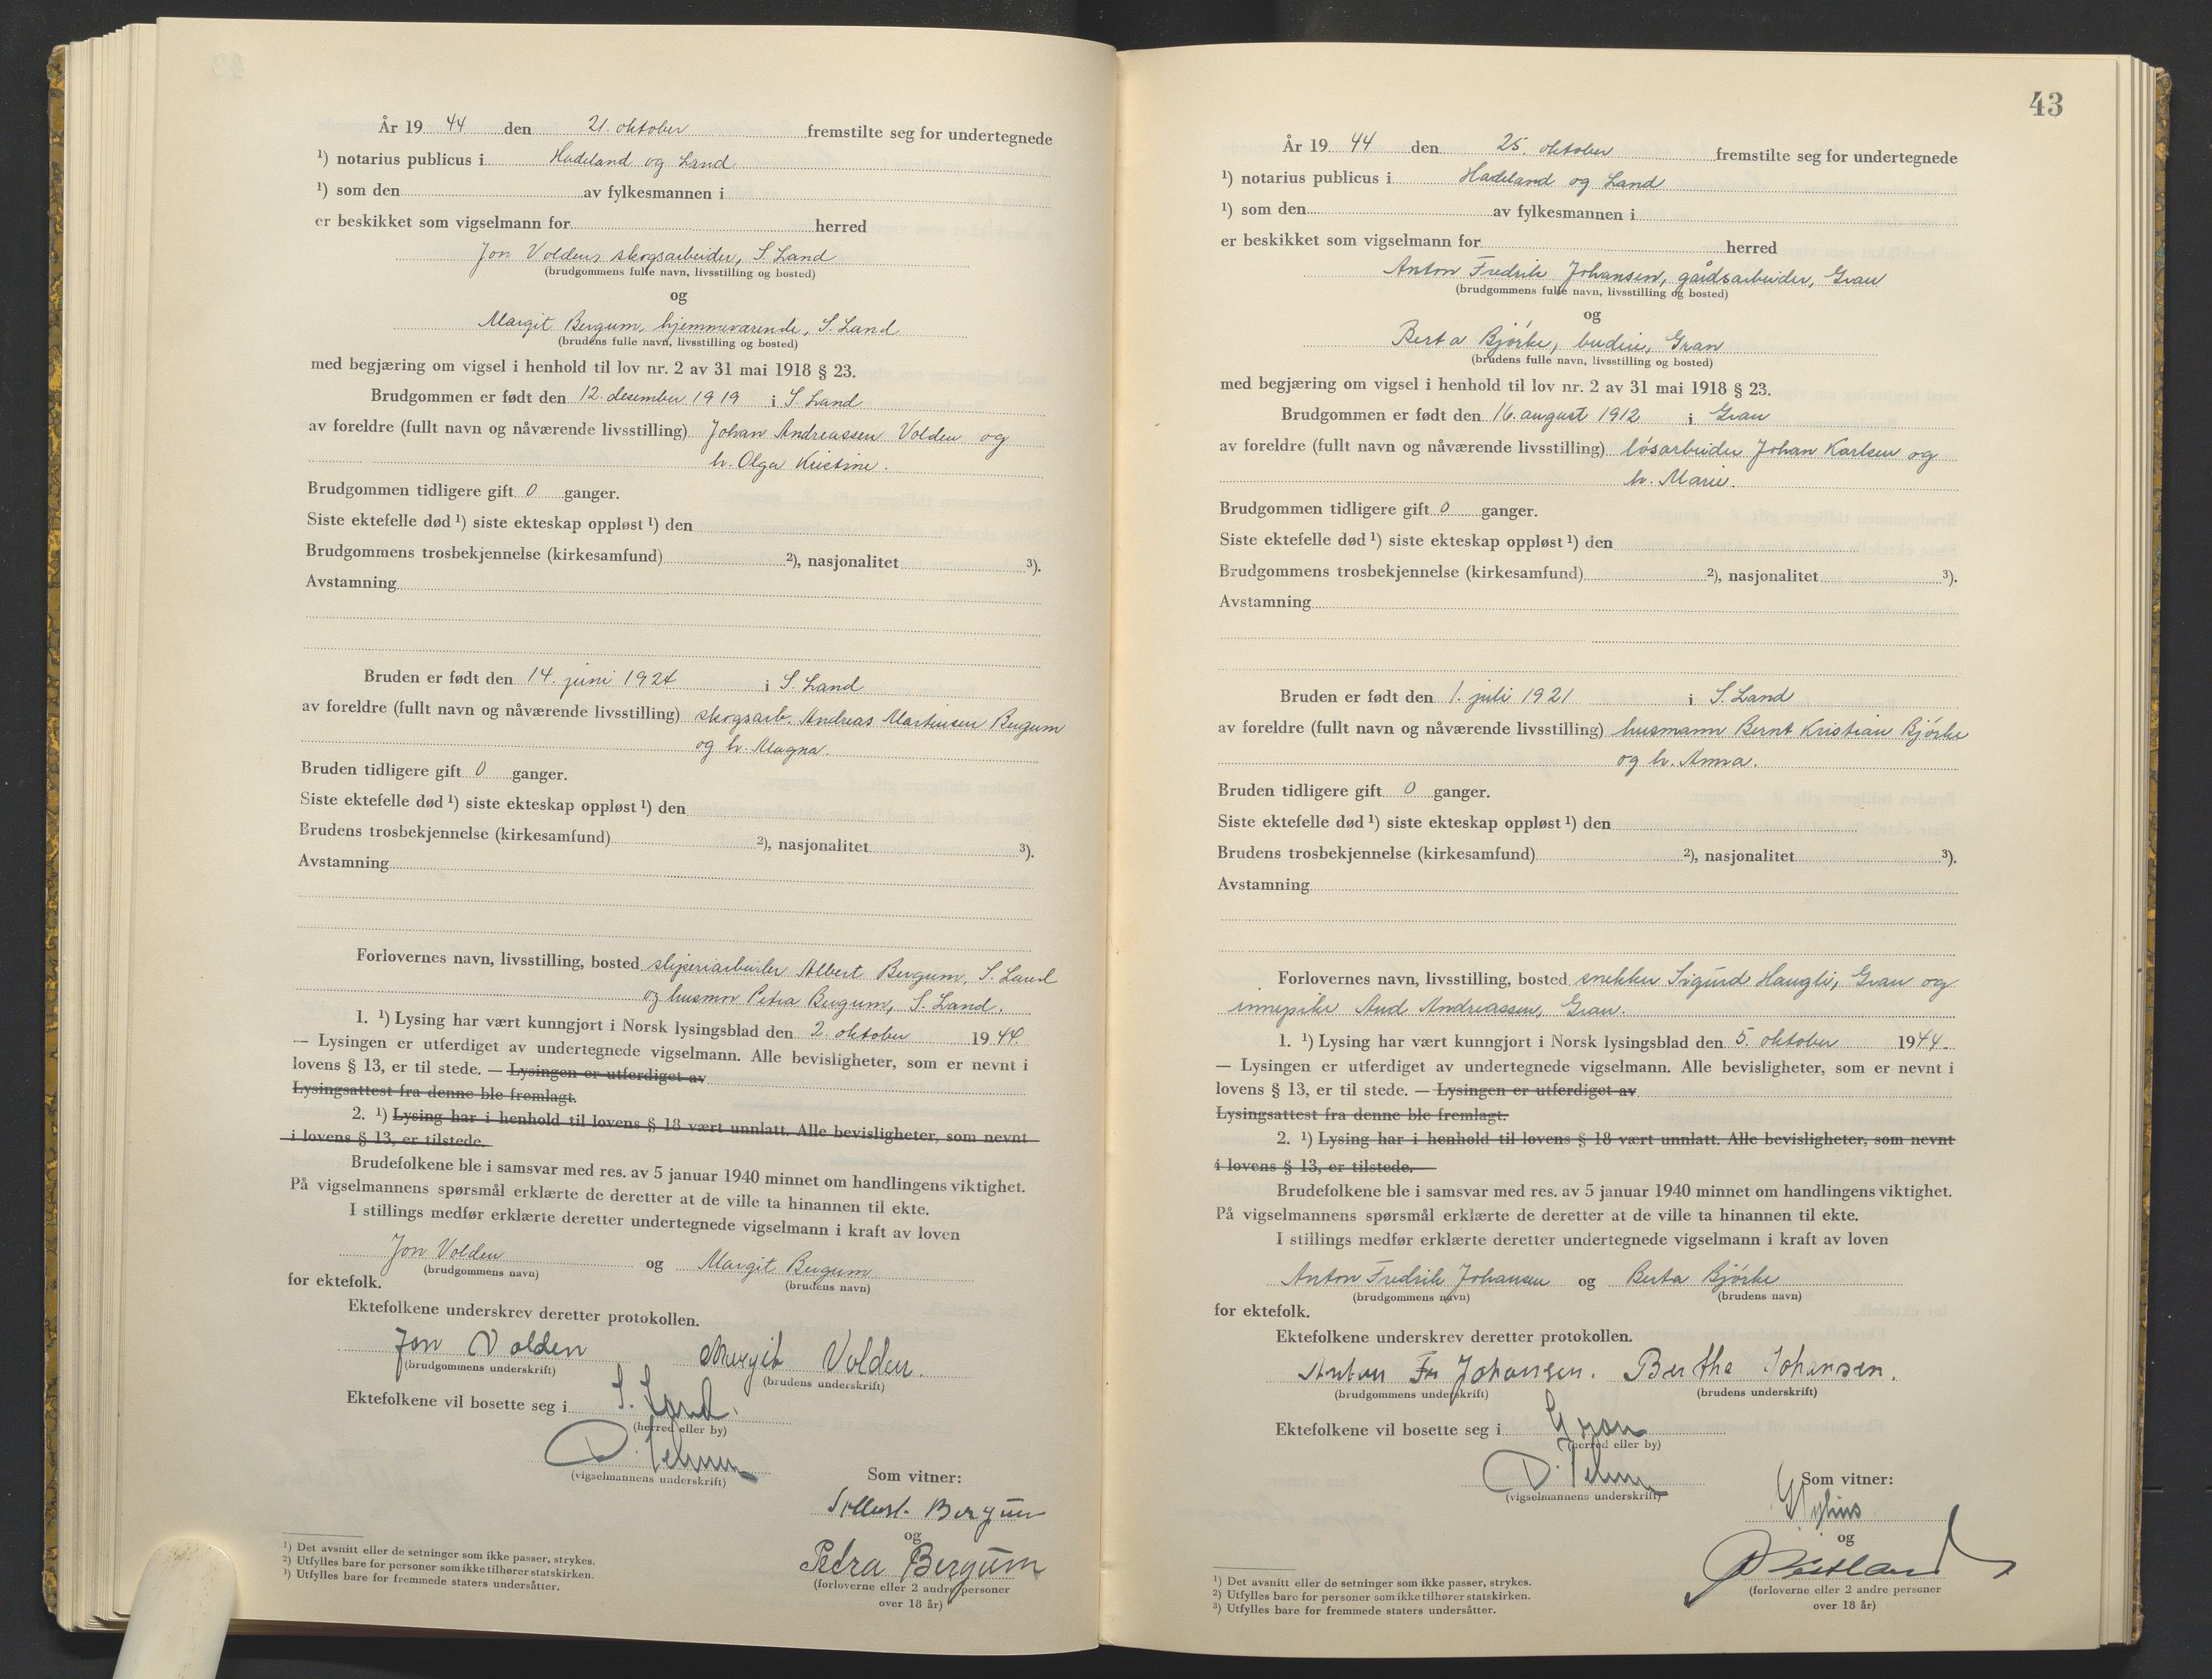 År 19 44 den 21. oktober fremstilte seg for undertegnede
¹) notarius publicus i Hadeland og Land
¹) som den av fylkesmannen i
er beskikket som vigselmann for herred
Jon Volden, skogsarbeider, S. Land
(brudgommens fulle navn, livsstilling og bosted)
og
Margit Bergum, hjemmeværende, S. Land
(brudens fulle navn, livsstilling og bosted)
med begjæring om vigsel i henhold til lov nr. 2 av 31 mai 1918 § 23.
Brudgommen er født den 12. desember 1919 i S. Land
av foreldre (fullt navn og nåværende livsstilling) Johan Andreassen Volden og
h. Olga Kristine.
Brudgommen tidligere gift 0 ganger.
Siste ektefelle død ¹) siste ekteskap oppløst ¹) den
Brudgommens trosbekjennelse (kirkesamfund) ²), nasjonalitet ³).
Avstamning
Bruden er født den 14. juni 1924 i S. Land
av foreldre (fullt navn og nåværende livsstilling) skogsarb. Andreas Martinsen Bergum
og h. Magna.
Bruden tidligere gift 0 ganger.
Siste ektefelle død ¹) siste ekteskap oppløst ¹) den
Brudens trosbekjennelse (kirkesamfund) ²), nasjonalitet ³).
Avstamning
Forlovernes navn, livsstilling, bosted sliperiarbeider Albert Bergum, S. Land
og husmor Petra Bergum, S. Land.
1. ¹) Lysing har vært kunngjort i Norsk lysingsblad den 2. oktober 1944.
— Lysingen er utferdiget av undertegnede vigselmann. Alle bevisligheter, som er nevnt i
lovens § 13, er til stede. — Lysingen er utferdiget av
Lysingsattest fra denne ble fremlagt.
2. ¹) Lysing har i henhold til lovens § 18 vært unnlatt. Alle bevisligheter, som nevnt
i lovens § 13, er tilstede.
Brudefolkene ble i samsvar med res. av 5 januar 1940 minnet om handlingens viktighet.
På vigselmannens spørsmål erklærte de deretter at de ville ta hinannen til ekte.
I stillings medfør erklærte deretter undertegnede vigselmann i kraft av loven
Jon Volden og Margit Bergum
(brudgommens navn) (brudens navn)
for ektefolk.
Ektefolkene underskrev deretter protokollen.
Jon Volden Margit Volden.
(brudgommens underskrift) (brudens underskrift)
Ektefolkene vil bosette seg i S. Land.
(herred eller by)
(vigselmannens underskrift)
Som vitner:
Albert Bergum
og
Petra Bergum
(forloverne eller 2 andre personer
over 18 år)
¹) Det avsnitt eller de setninger som ikke passer, strykes.
²) Utfylles bare for personer som ikke tilhører statskirken.
³) Utfylles bare for fremmede staters undersåtter.
43
År 19 44 den 25. oktober fremstilte seg for undertegnede
¹) notarius publicus i Hadeland og Land
¹) som den av fylkesmannen i
er beskikket som vigselmann for herred
Anton Fredrik Johansen, gårdsarbeider, Gran
(brudgommens fulle navn, livsstilling og bosted)
og
Berta Bjørke, budeie, Gran
(brudens fulle navn, livsstilling og bosted)
med begjæring om vigsel i henhold til lov nr. 2 av 31 mai 1918 § 23.
Brudgommen er født den 16. august 1912 i Gran
av foreldre (fullt navn og nåværende livsstilling) løsarbeider Johan Karlsen og
h. Marie.
Brudgommen tidligere gift 0 ganger.
Siste ektefelle død ¹) siste ekteskap oppløst ¹) den
Brudgommens trosbekjennelse (kirkesamfund) ²), nasjonalitet ³).
Avstamning
Bruden er født den 1. juli 1921 i S. Land
av foreldre (fullt navn og nåværende livsstilling) husmann Bernt Kristian Bjørke
og h. Anna.
Bruden tidligere gift 0 ganger.
Siste ektefelle død ¹) siste ekteskap oppløst ¹) den
Brudens trosbekjennelse (kirkesamfund) ²), nasjonalitet ³).
Avstamning
Forlovernes navn, livsstilling, bosted snekker Sigurd Haugli, Gran og
innepike Aud Andreassen, Gran.
1. ¹) Lysing har vært kunngjort i Norsk lysingsblad den 5. oktober 1944.
— Lysingen er utferdiget av undertegnede vigselmann. Alle bevisligheter, som er nevnt i
lovens § 13, er til stede. — Lysingen er utferdiget av
Lysingsattest fra denne ble fremlagt.
2. ¹) Lysing har i henhold til lovens § 18 vært unnlatt. Alle bevisligheter, som nevnt
i lovens § 13, er tilstede.
Brudefolkene ble i samsvar med res. av 5 januar 1940 minnet om handlingens viktighet.
På vigselmannens spørsmål erklærte de deretter at de ville ta hinannen til ekte.
I stillings medfør erklærte deretter undertegnede vigselmann i kraft av loven
Anton Fredrik Johansen og Berta Bjørke
(brudgommens navn) (brudens navn)
for ektefolk.
Ektefolkene underskrev deretter protokollen.
Anton Fr Johansen. Berthe Johansen.
(brudgommens underskrift) (brudens underskrift)
Ektefolkene vil bosette seg i Gran
(herred eller by)
(vigselmannens underskrift)
Som vitner:
og
(forloverne eller 2 andre personer
over 18 år)
¹) Det avsnitt eller de setninger som ikke passer, strykes.
²) Utfylles bare for personer som ikke tilhører statskirken.
³) Utfylles bare for fremmede staters undersåtter.